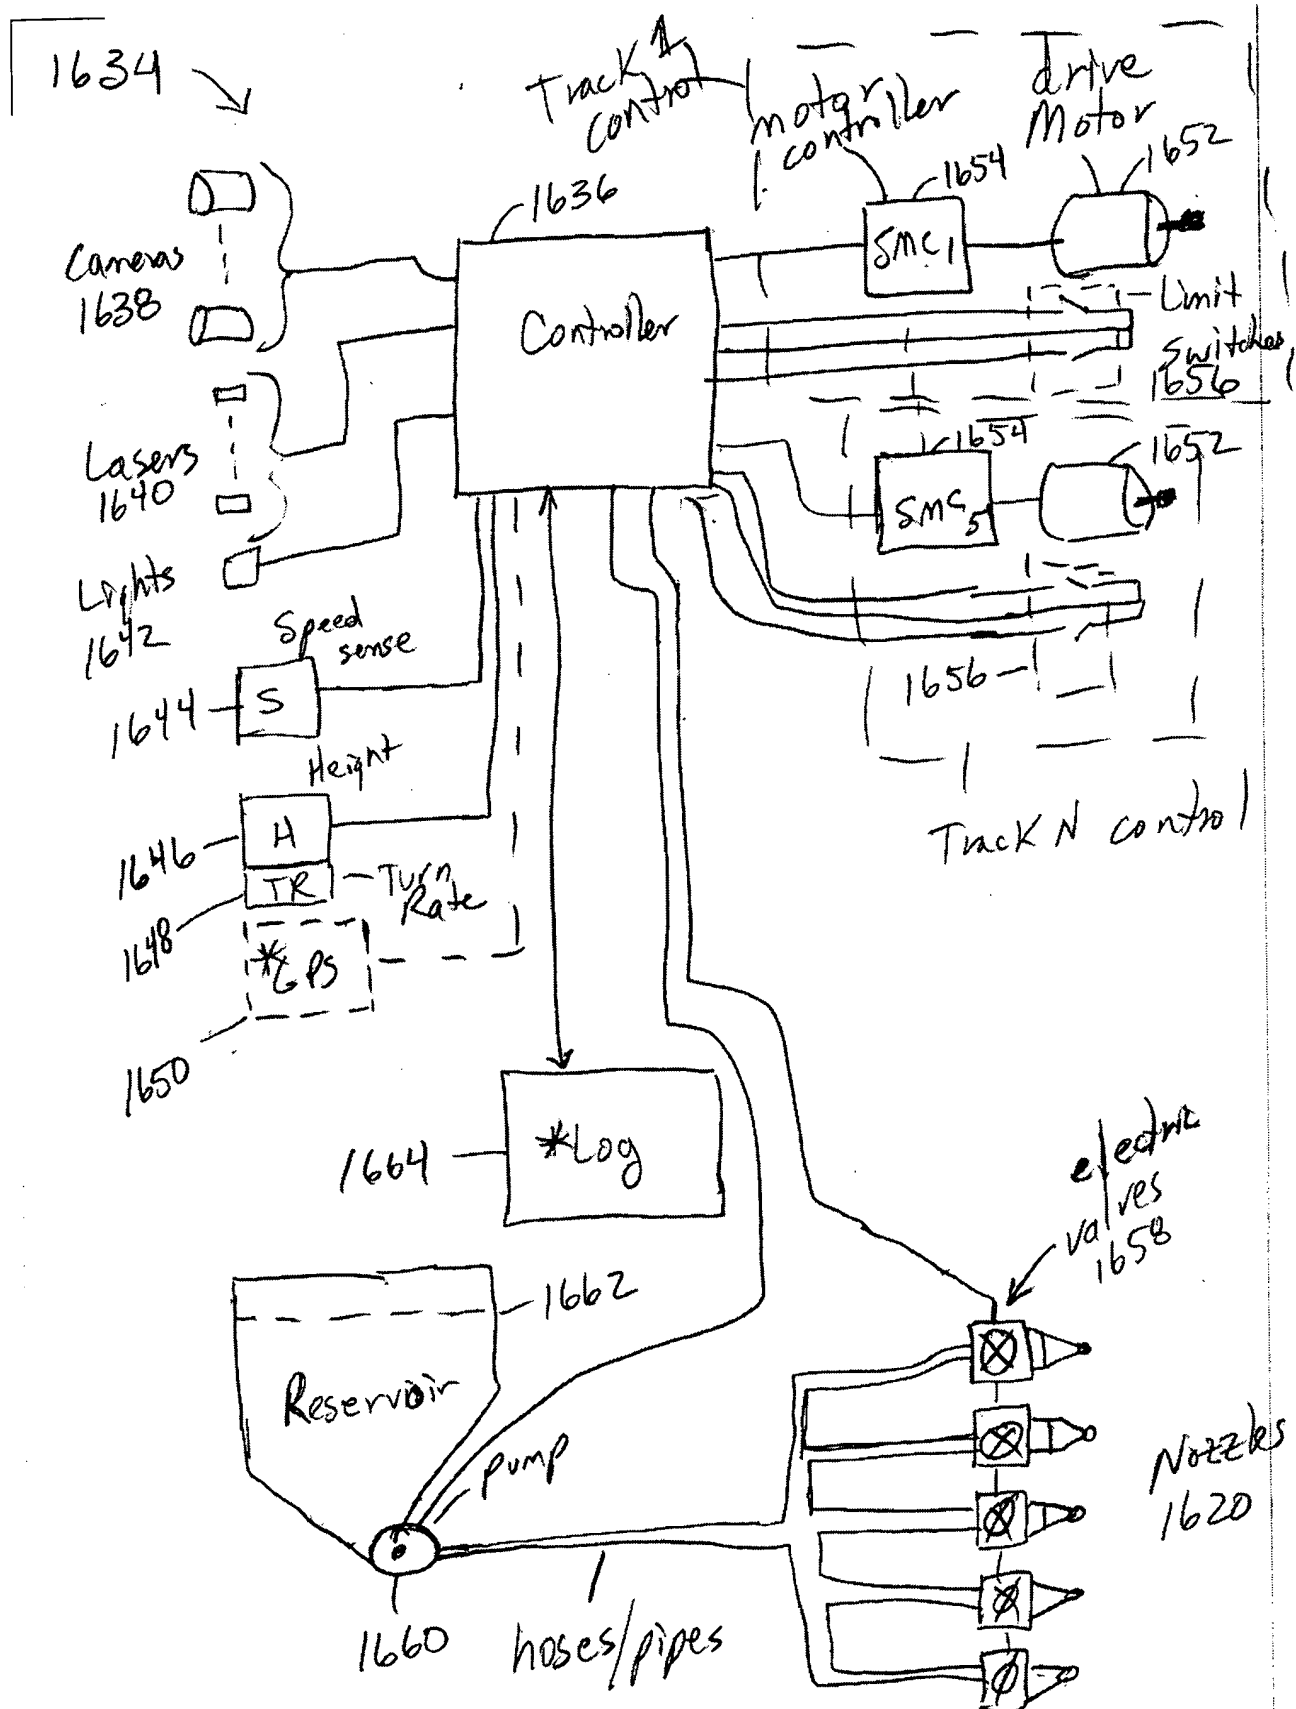 1634
Track 1
control
motor
controller
drive
Motor
1636
1654
1652
Cameras
1638
SMC1
Controller
Limit
Switches
1656
Lasers
1640
1654
1652
SMC5
Lights
1642
Speed
sense
S
1644
1656
Height
H
1646
Track N control
TR
Turn
Rate
1648
*GPS
1650
*Log
1664
electric
valves
1658
1662
Reservoir
pump
Nozzles
1620
1660
hoses/pipes